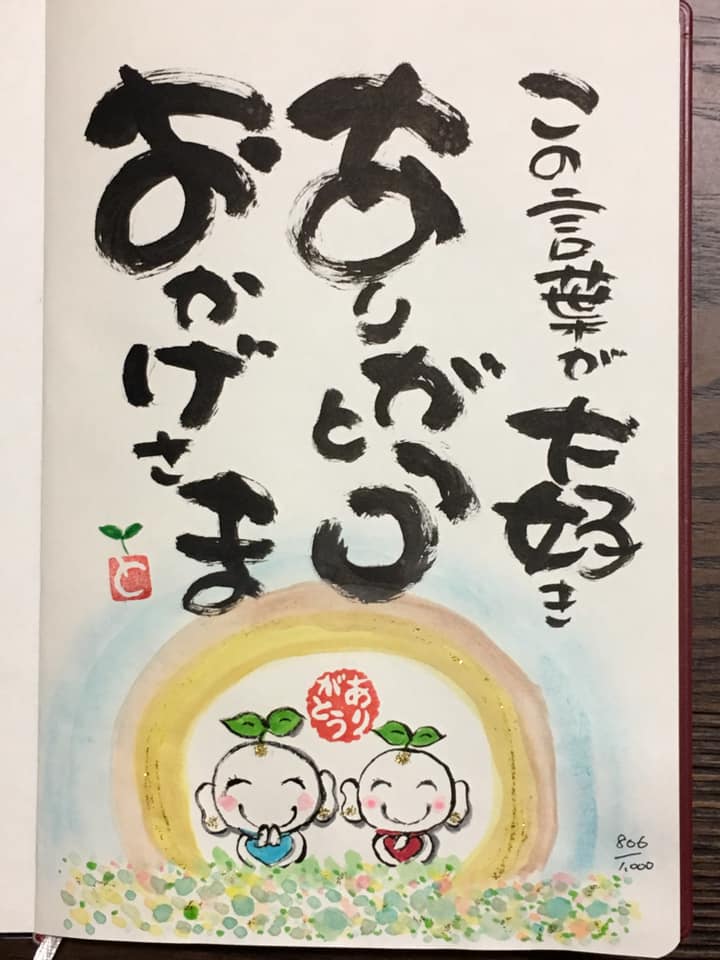 この言葉が大好き
ありがとう
おかげさま
と
ありがとう
806/1,000